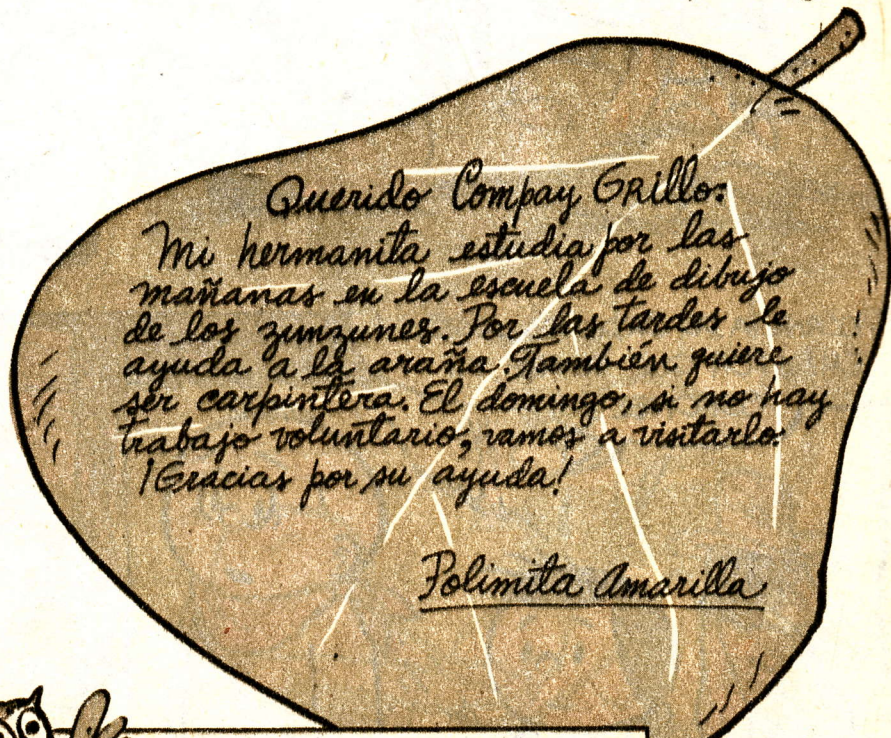 Querido Compay Grillo:
Mi hermanita estudia por las
mañanas en la escuela de dibujo
de los zunzunes. Por las tardes le
ayuda a la araña. También quiere
ser carpintera. El domingo, si no hay
trabajo voluntario, vamos a visitarlo.
¡Gracias por su ayuda!
Polimita Amarilla